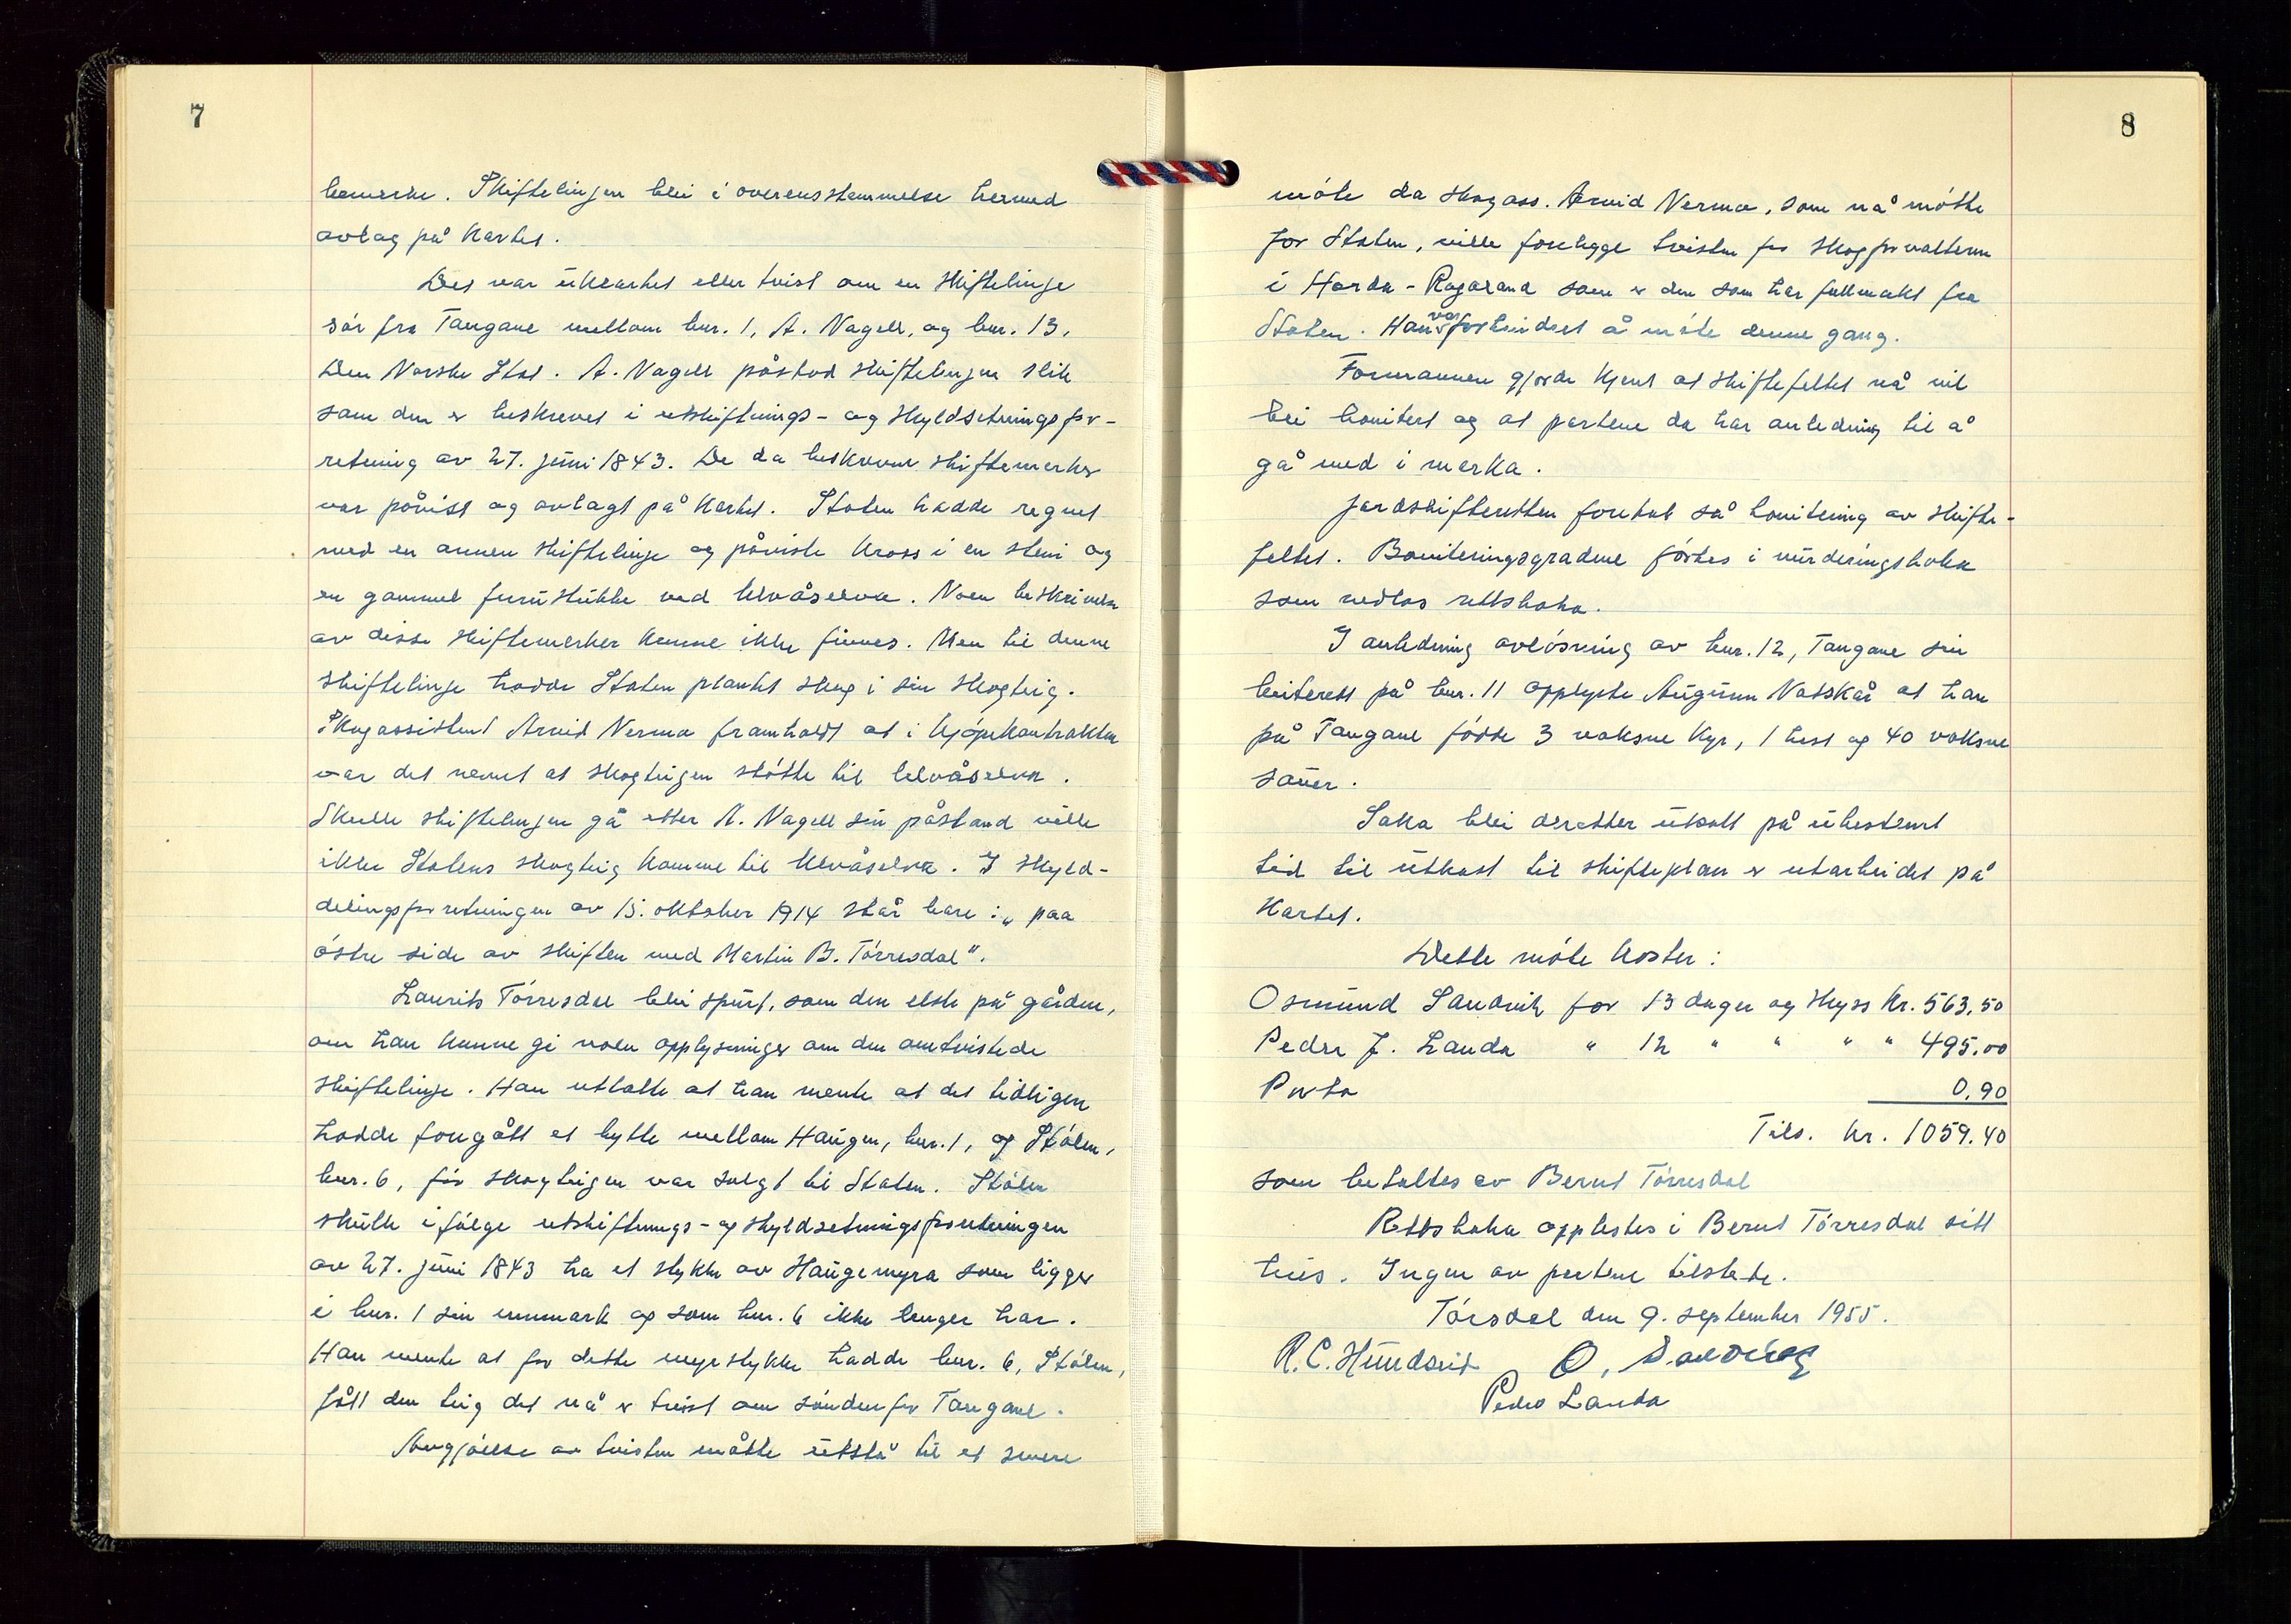 7
bemerke. Skiftelinjen blei i overensstemmelse hermed
avlag på kartet.
Det var uklarhet eller tvist om en skiftelinje
sør fra Tangane mellom bnr. 1, A. Nagell, og bnr. 13,
Den Norske Stat. A. Nagell påstod skiftelinjen slik
som den er beskrevet i utskiftnings- og skyldsetningsfor-
retning av 27. juni 1843. De da beskrevne skiftemerker
var påvist og avlagt på kartet. Staten hadde regnet
med en annen skiftelinje og påviste kross i en stein og
en gammel furustubbe ved Ulvåselva. Noen beskrivelse
av disse skiftemerker kunne ikke finnes. Men til denne
skiftelinje hadde Staten plantet skog i sin skogteig.
Skogassistent Arvid Nerma framholdt at i kjøpekontrakten
var det nevnt at skogteigen støtte til Ulvåselva.
Skulle skiftelinjen gå etter A. Nagell sin påstand ville
ikke Statens skogteig komme til Ulvåselva. I skyld-
delingsforretningen av 15. oktober 1914 står bare: „ paa
østre side av skiften med Martin B. Tørresdal".
Laurits Tørresdal blei spurt, som den elste på gården,
om han kunne gi noen opplysninger om den omtvistede
skiftelinje. Han uttalte at han mente at det tidligere
hadde foregått et bytte mellom Haugen, bnr. 1, og Stølen,
bnr. 6, før skogteigen var solgt til Staten. Stølen
skulle ifølge utskiftnings- og skyldsetningsforretningen
av 27. juni 1843 ha et stykke av Haugemyra som ligger
i bnr. 1 sin innmark og som bnr. 6 ikke lenger har.
Han mente at for dette myrstykke hadde bnr. 6, Stølen,
fått den teig det nå er tvist om sønden for Tangane.
Avgjørelse av tvisten måtte utstå til et senere
8
møte da skogass. Arvid Nerma, som nå møtte
for Staten, ville forelegge tvisten for skogforvalteren
i Horda-Rogaland som er den som har fullmakt fra
Staten. Han var forhindret å møte denne gang.
Formannen gjorde kjent at skiftefeltet nå vil
bli bonitert og at partene da har anledning til å
gå med i marka.
Jordskifteretten foretok så bonitering av skifte-
feltet. Boniteringsgradene førtes i vurderingsboka
som vedlas rettsboka.
I anledning avløsning av bnr. 12, Tangane sin
beiterett på bnr. 11 opplyste Augunn Vatskår at han
på Tangane fødde 3 voksne kyr, 1 hest og 40 voksne
sauer.
Saka blei deretter utsatt på ubestemt
tid til utkast til skifteplan er utarbeidet på
kartet.
Dette møte koster:
Osmund Sandvik for 13 dager og skyss kr. 563,50
Peder J. Landa " 12 " " " " 495.00
Porto 0,90
Tils. kr. 1059.40
som betaltes av Bernt Tørresdal
Rettsboka opplestes i Bernt Tørresdal sitt
hus. Ingen av partene tilstede.
Tørsdal den 9. september 1955.
R. C. Hundseid O. Sandvig
Peder Landa